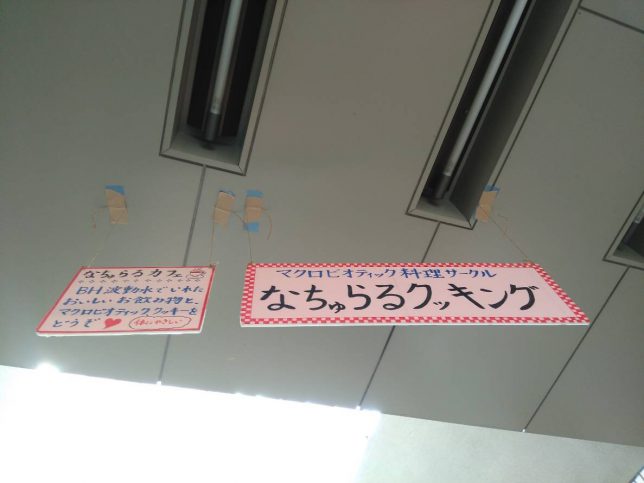 なちゅらるカフェ
BH波動水でいれた
おいしいお飲み物と、
マクロビオティッククッキーを
どうぞ♥ 体にやさしい
マクロビオティック料理サークル
なちゅらるクッキング